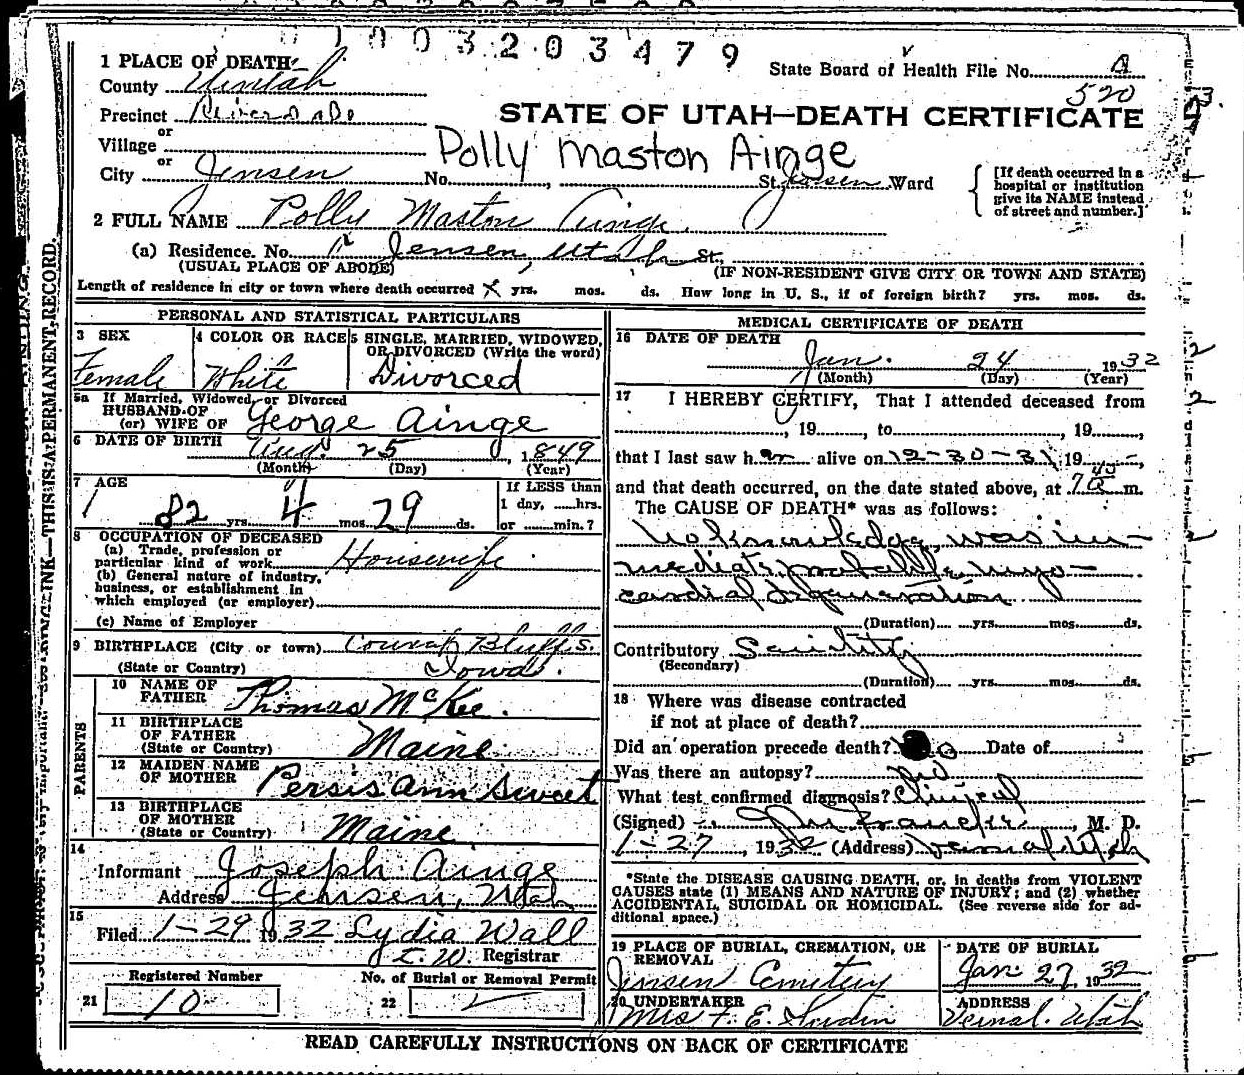 1003203479
1 PLACE OF DEATH
State Board of Health File No. A
County Uintah
520
Precinct Riverdale
STATE OF UTAH—DEATH CERTIFICATE
or
Village
Polly Maston Ainge
or
City Jensen No. , St. Jensen Ward
[If death occurred in a hospital or institution give its NAME instead of street and number.]
2 FULL NAME Polly Maston Ainge
(a) Residence. No. Jensen, Utah St.
(USUAL PLACE OF ABODE) (IF NON-RESIDENT GIVE CITY OR TOWN AND STATE)
Length of residence in city or town where death occurred yrs. mos. ds. How long in U. S., if of foreign birth? yrs. mos. ds.
PERSONAL AND STATISTICAL PARTICULARS
3 SEX
Female
4 COLOR OR RACE
White
5 SINGLE, MARRIED, WIDOWED,
OR DIVORCED (Write the word)
Divorced
5a If Married, Widowed, or Divorced
HUSBAND OF
(or) WIFE OF George Ainge
6 DATE OF BIRTH Aug. 25, 1849
(Month) (Day) (Year)
7 AGE
82 yrs. 4 mos. 29 ds.
If LESS than
1 day, ......hrs.
or ......min.?
8 OCCUPATION OF DECEASED
(a) Trade, profession or
particular kind of work Housewife
(b) General nature of industry,
business, or establishment in
which employed (or employer)
(c) Name of Employer
9 BIRTHPLACE (City or town) Council Bluffs.
(State or Country) Iowa.
PARENTS
10 NAME OF
FATHER Thomas McKee.
11 BIRTHPLACE
OF FATHER
(State or Country) Maine.
12 MAIDEN NAME
OF MOTHER Persis Ann Sweet
13 BIRTHPLACE
OF MOTHER
(State or Country) Maine
14
Informant Joseph Ainge
Address Jensen, Utah
15
Filed 1-29 1932 Lydia Wall
Registrar
Registered Number No. of Burial or Removal Permit
21 10 22
MEDICAL CERTIFICATE OF DEATH
16 DATE OF DEATH
Jan. 24 1932
(Month) (Day) (Year)
17 I HEREBY CERTIFY, That I attended deceased from
, 19 , to , 19 ,
that I last saw her alive on 12-30-31 19 ,
and that death occurred, on the date stated above, at 7 45 a m.
The CAUSE OF DEATH* was as follows:
No knowledge, was im-
mediate, probable myo-
cardial degeneration
(Duration) yrs. mos. ds.
Contributory Senility
(Secondary)
(Duration) yrs. mos. ds.
18 Where was disease contracted
if not at place of death?
Did an operation precede death? No Date of
Was there an autopsy? No
What test confirmed diagnosis? Clinical
(Signed) , M. D.
1-27, 1932 (Address) Vernal Utah
*State the DISEASE CAUSING DEATH, or, in deaths from VIOLENT
CAUSES state (1) MEANS AND NATURE OF INJURY; and (2) whether
ACCIDENTAL, SUICIDAL OR HOMICIDAL. (See reverse side for ad-
ditional space.)
19 PLACE OF BURIAL, CREMATION, OR
REMOVAL
Jensen Cemetery
DATE OF BURIAL
Jan. 27, 1932
20 UNDERTAKER
Mrs F. E.
ADDRESS
Vernal. Utah
READ CAREFULLY INSTRUCTIONS ON BACK OF CERTIFICATE
INK—THIS IS A PERMANENT RECORD.